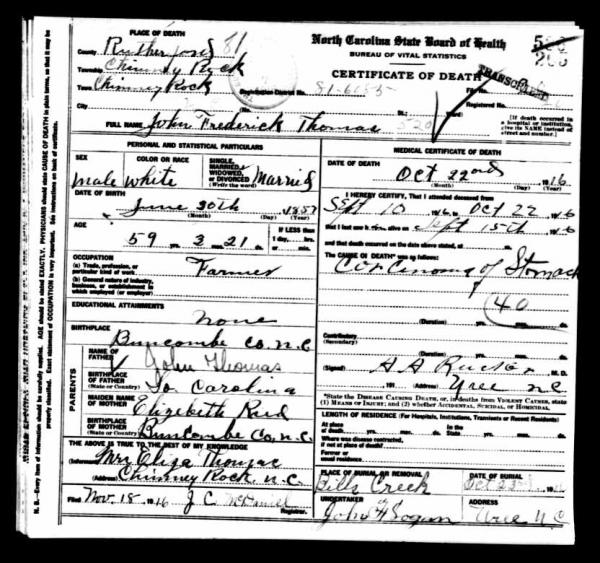 PLACE OF DEATH
County Rutherford 81
Township Chimney Rock
Town Chimney Rock
City
North Carolina State Board of Health
BUREAU OF VITAL STATISTICS
CERTIFICATE OF DEATH
TRANSCRIBED
Registration District No. 81-6085
Registered No.
St.; Ward)
[If death occurred in
a hospital or institution,
give its NAME instead of
street and number.]
FULL NAME John Frederick Thomas
PERSONAL AND STATISTICAL PARTICULARS
SEX
male
COLOR OR RACE
White
SINGLE,
MARRIED,
WIDOWED,
OR DIVORCED
(Write the word)
Married
DATE OF BIRTH
June 30th 1857
(Month) (Day) (Year)
AGE
59 yrs. 3 mos. 21 ds.
IF LESS than
1 day, hrs.
or min.
OCCUPATION
(a) Trade, profession, or
particular kind of work
Farmer
(b) General nature of industry,
business, or establishment in
which employed (or employer)
EDUCATIONAL ATTAINMENTS
none
BIRTHPLACE
(State or Country)
Buncombe Co. N.C
PARENTS
NAME OF
FATHER
John Thomas
BIRTHPLACE
OF FATHER
(State or Country)
So Carolina
MAIDEN NAME
OF MOTHER
Elizebeth
BIRTHPLACE
OF MOTHER
(State or Country)
Buncombe Co. N.C.
THE ABOVE IS TRUE TO THE BEST OF MY KNOWLEDGE
(Informant) Mrs Eliza Thomas
(Address) Chimney Rock N.C.
Filed Nov. 18, 1916 J C McDaniel
Registrar.
MEDICAL CERTIFICATE OF DEATH
DATE OF DEATH
Oct 22nd 1916
(Month) (Day) (Year)
I HEREBY CERTIFY, That I attended deceased from
Sept 10 1916, to Oct 22 1916
that I last saw h alive on Sept 15th 1916
and that death occurred on the date above stated, at m.
The CAUSE OF DEATH* was as follows:
Carcinoma of Stomach
(40
(Duration) yrs. mos. ds.
Contributory
(Secondary)
(Duration) yrs. mos. ds.
(Signed) A A Rucker M.D.
, 191 (Address) Uree N C
*State the DISEASE CAUSING DEATH, or, in deaths from VIOLENT CAUSES, state
(1) MEANS OF INJURY; and (2) whether ACCIDENTAL, SUICIDAL, or HOMICIDAL.
LENGTH OF RESIDENCE (For Hospitals, Institutions, Transients or Recent Residents)
At place
of death yrs. mos. ds. In the
State yrs. mos. ds.
Where was disease contracted,
if not at place of death?
Former or
usual residence
PLACE OF BURIAL OR REMOVAL
Bills Creek
DATE OF BURIAL
Oct 23
UNDERTAKER
John H Logan
ADDRESS
Uree N C